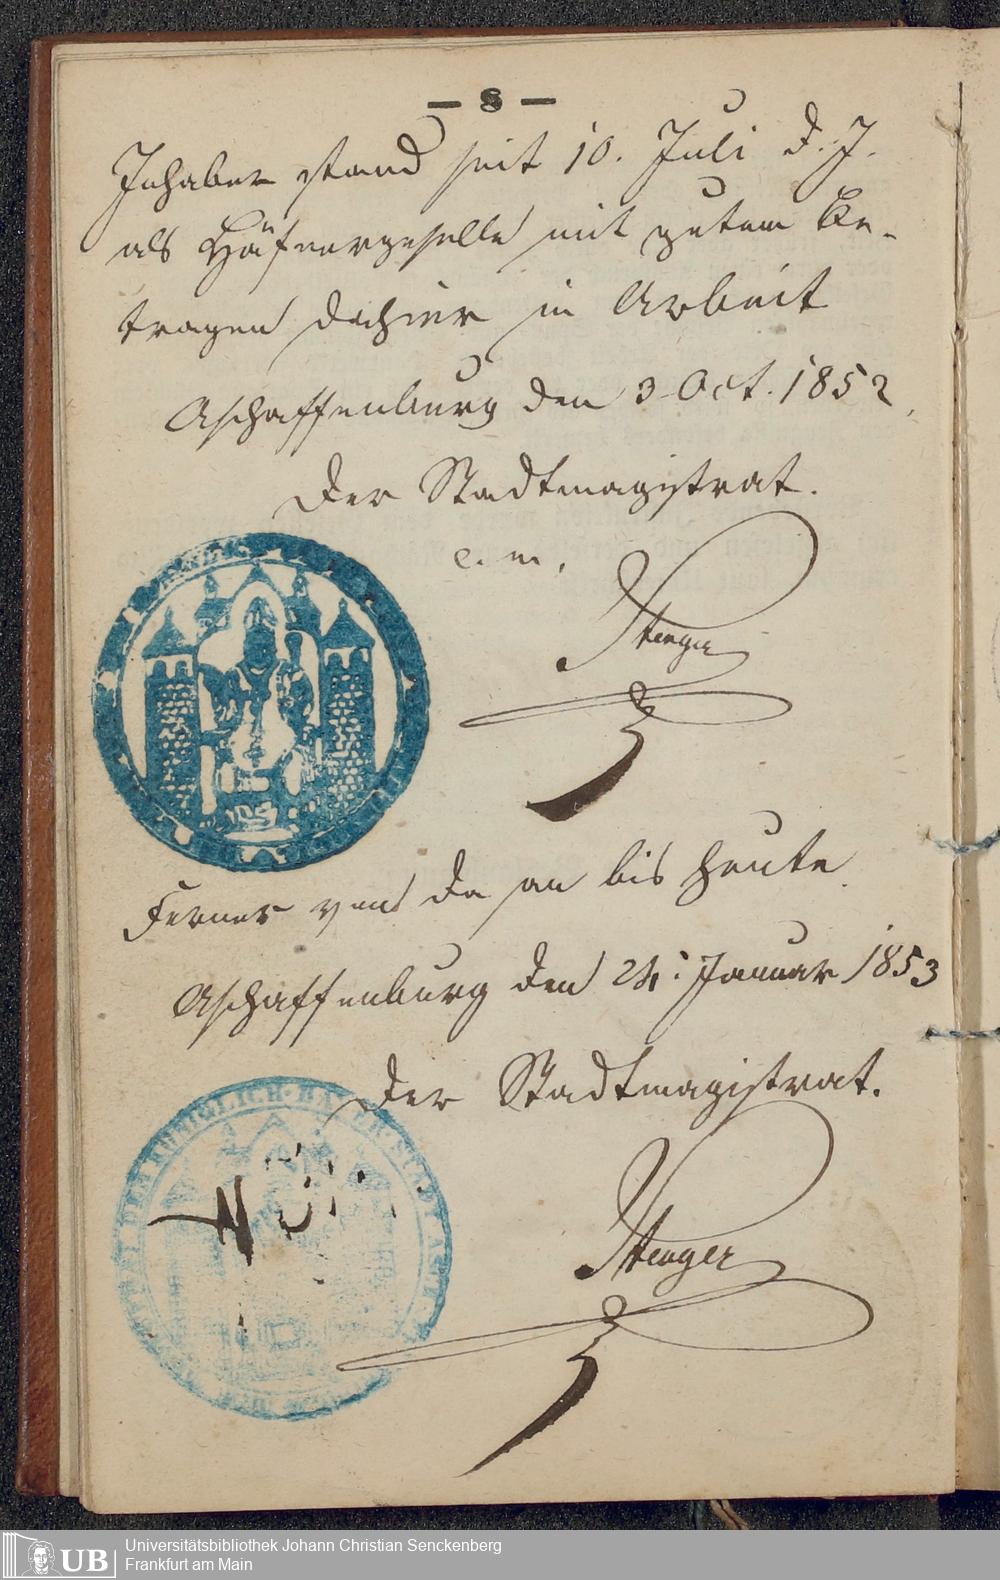 — 8 —
Inhaber stand seit 10. Juli d. J.
als Häfnergeselle mit gutem Be-
tragen dahier in Arbeit
Aschaffenburg den 3 Oct. 1852
Der Stadtmagistrat.
e. m.
Stenger
Ferner von da an bis heute
Aschaffenburg den 24. Januar 1853
Der Stadtmagistrat.
Stenger
UB
Universitätsbibliothek Johann Christian Senckenberg
Frankfurt am Main